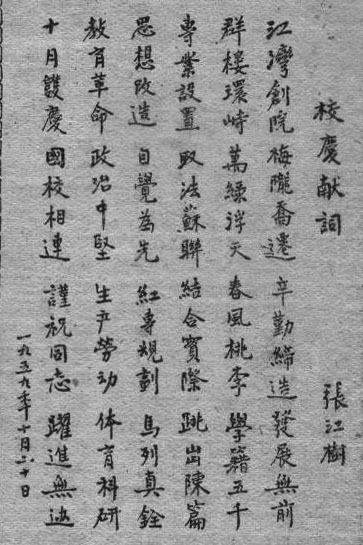 校慶献詞
張江樹
江灣創院 梅隴喬遷 辛勤締造 發展無前
群樓環峙 萬綠浮天 春風桃李 學籍五千
專業設置 取法蘇聯 結合實際 跳出陳篇
思想改造 自覺為先 紅專規劃 馬列真銓
教育革命 政治中堅 生产勞动 体育科研
十月雙慶 國校相連 謹祝同志 躍進無边
一九五九年十月二十日